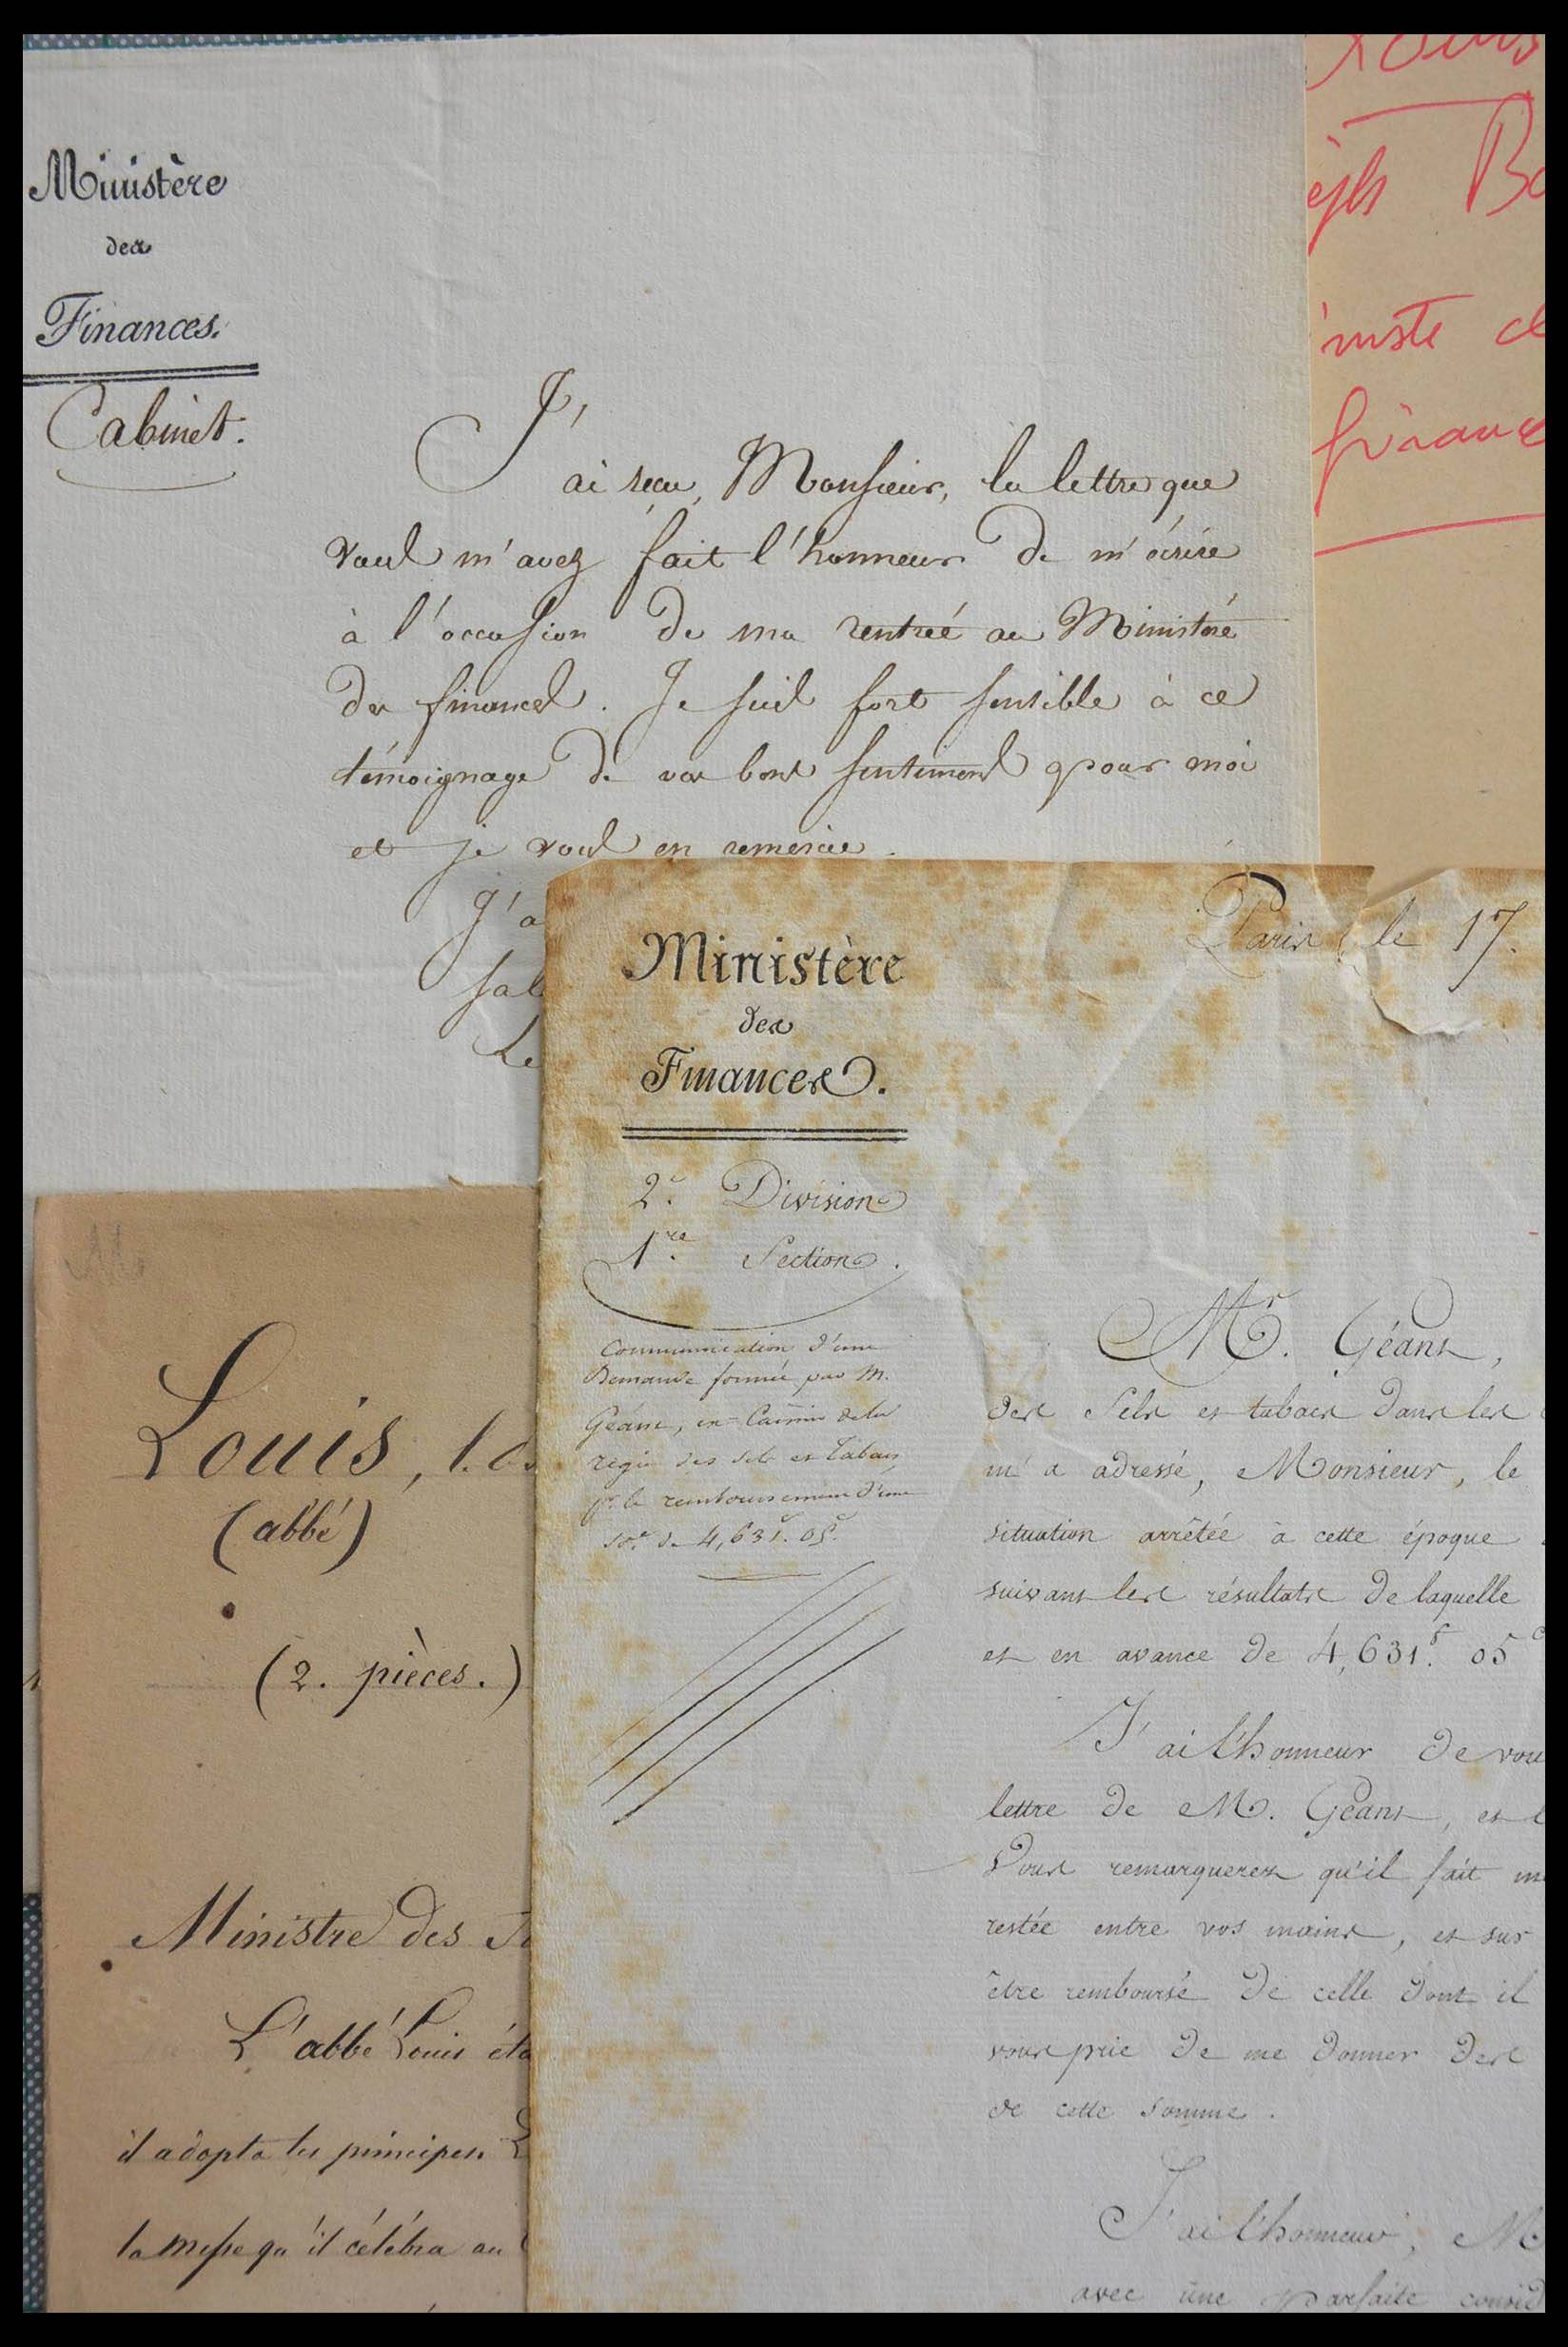 Ministère
des
Finances.
Cabinet.
J'
ai reçu, Monsieur, la lettre que
vous m'avez fait l'honneur de m'écrire
à l'occasion de ma rentrée au Ministère
des finances. Je suis fort sensible à ce
témoignage de vos bons sentimens pour moi
et je vous en remercie.
J'a
sal
Le
Bo
finance
Ministère
des
Finances.
Paris, le 17.
2e. Division
1re. Section.
Communication d'une
Demande formée par M.
Géant, ex-Caissier de la
régie des sels et tabacs,
pr. le remboursement d'une
se. de 4,631. 05c.
Mr. Géant,
des Sels et tabacs dans les
m'a adressé, Monsieur, le
situation arrêtée à cette époque
suivant les résultats de laquelle
est en avance de 4,631f. 05c
J'ai l'honneur de vou
lettre de M. Géant, et
Vous remarquerez qu'il fait
restée entre vos mains, et sur
être remboursé de celle dont il
vous prie de me donner des
de cette somme.
J'ai l'honneur, M
avec une parfaite consid
Louis,
(abbé)
(2. pièces.)
Ministre des
L'abbé Louis éta
il adopta les principes
la messe qu'il célébra au